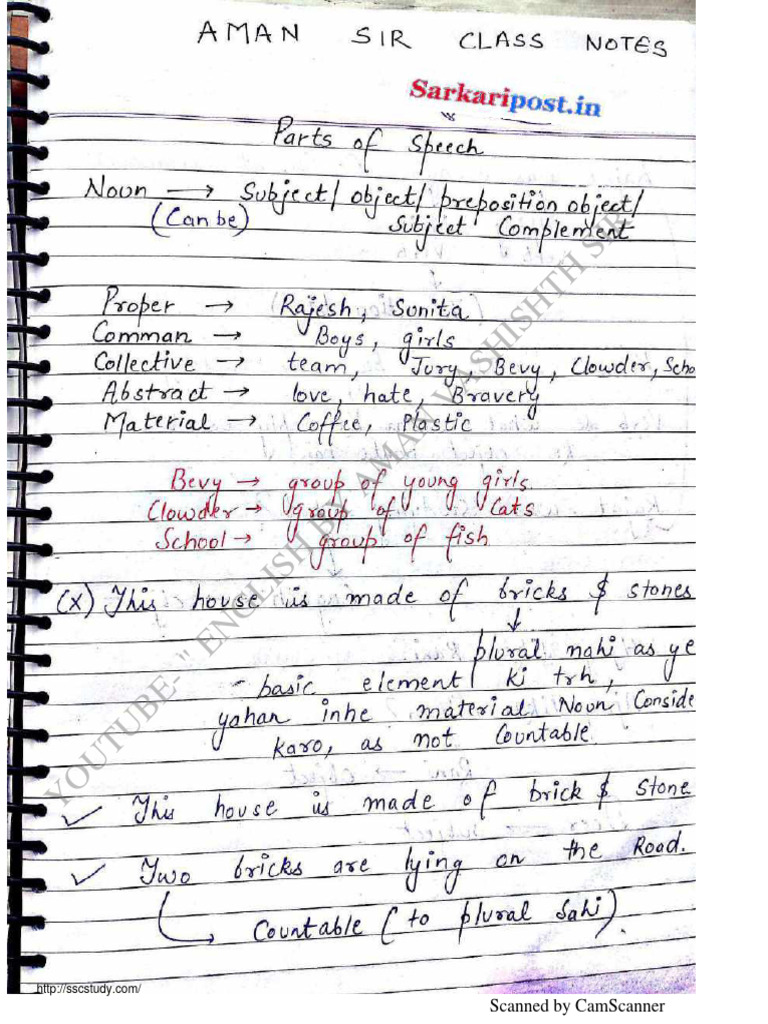 AMAN SIR CLASS NOTES
Sarkaripost.in
Parts of Speech
Noun → Subject/ object/ preposition object/
(Can be) Subject Complement
Proper → Rajesh, Sunita
Comman → Boys, girls
Collective → team, Jury, Bevy, Clowder, Scho
Abstract → love, hate, Bravery
Material → Coffee, Plastic
Bevy → group of young girls
Clowder → group of Cats
School → group of fish
(x) This house is made of bricks & stones
plural nahi as ye
- basic element ki trh,
yahan inhe material Noun Conside
karo, as not Countable
✓ This house is made of brick & stone
✓ Two bricks are lying on the Road.
Countable (to plural Sahi).
YOUTUBE- " ENGLISH BY AMAN VASHISHTH SIR
http://sscstudy.com/
Scanned by CamScanner